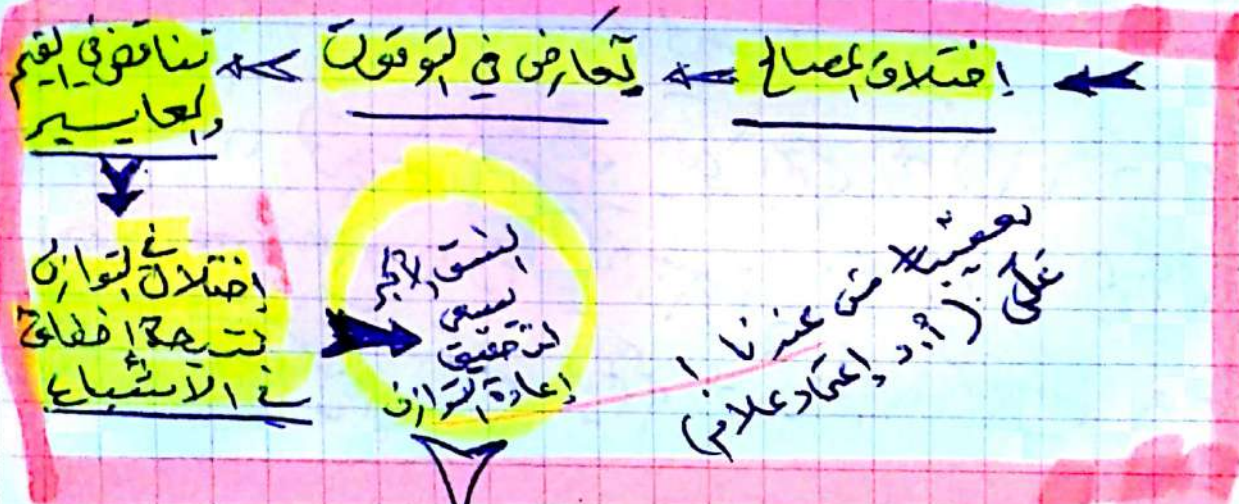 إختلاف المصالح
تعارض في التوقعات
تناقض في القيم
والمعايير
إختلال في التوازن
نتيجة إخفاق
في الاشباع
النسق الأكبر
يسعى
لتحقيق
إعادة التوازن
من عندنا !
على (أ. د إعتماد علام)